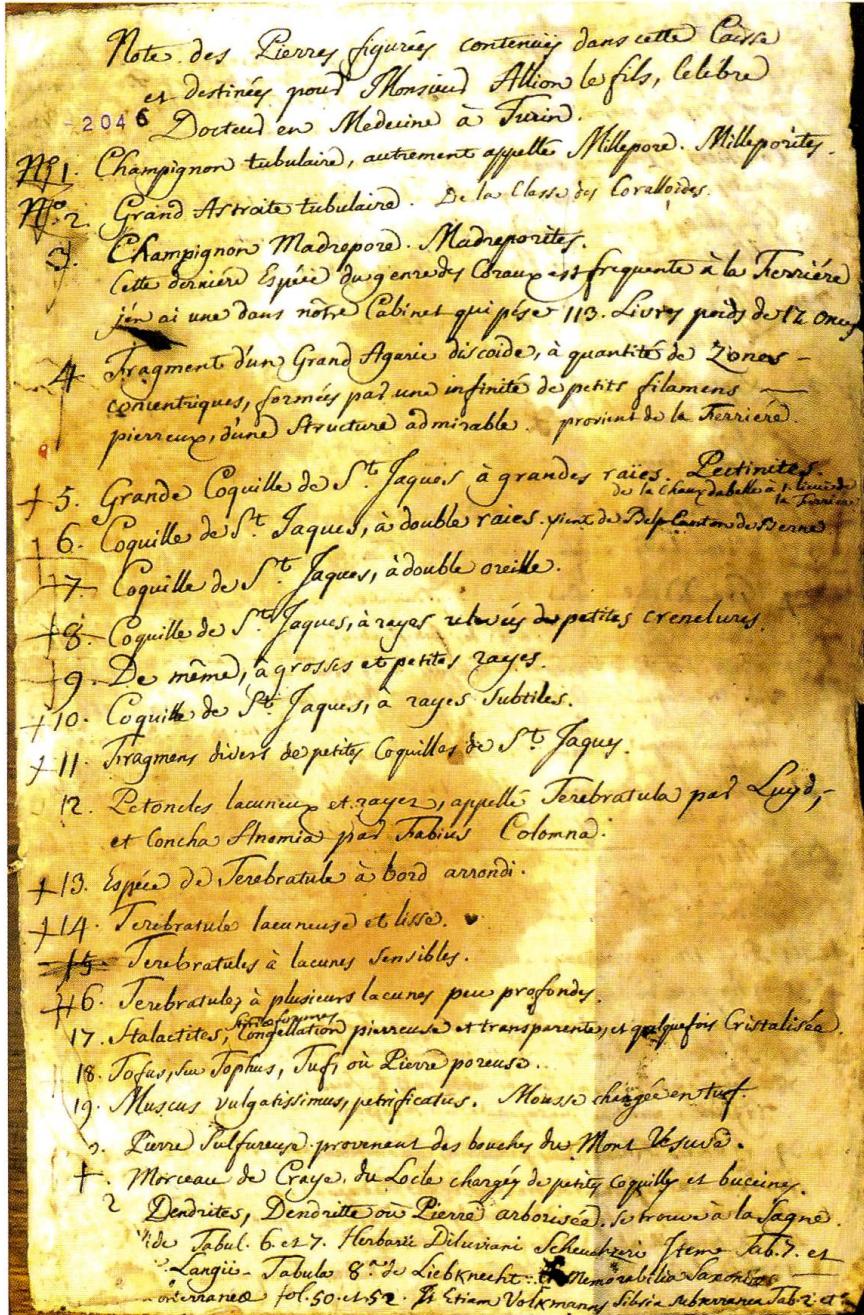 Note des Pierres figurées contenües dans cette Caisse
et destinées pour Monsieur Allion le fils, celebre
2046 Docteur en Medecine à Turin.
Nº 1. Champignon tubulaire, autrement appellé Millepore. Milleporites.
Nº 2. Grand Astroite tubulaire. De la Classe des Coralloides.
3. Champignon Madrepore. Madreporites.
Cette derniére Espéce du genre des Coraux est frequente à la Ferriére
j'en ai une dans nôtre Cabinet qui pése 113. Livres poids de 12 onces
4 Fragment d'un Grand Agaric discoide, à quantité de Zones -
concentriques, formées par une infinité de petits filamens —
pierreux, d'une Structure admirable. provient de la Ferriére.
+ 5. Grande Coquille de St. Jaques à grandes raïes. Pectinites.
de la Chaurdabelle à 1. lieüe de
la Ferriére
+ 6. Coquille de St. Jaques, à double raies. vient de Belp Canton de Berne
+ 7. Coquille de St. Jaques, à double oreille.
+ 8. Coquille de St. Jaques, à rayes relevées de petites crenelures.
+ 9. De même, à grosses et petites rayes.
+ 10. Coquille de St. Jaques, à rayes subtiles.
+ 11. Fragmens divers de petites Coquilles de St. Jaques.
12. Petoncles lacuneux et rayez, appellé Terebratula par Luyd,
et Concha Anomia par Fabius Colomna.
+ 13. Espéce de Terebratule à bord arrondi.
+ 14. Terebratule lacuneuse et lisse.
15. Terebratules à lacunes sensibles.
+ 16. Terebratules à plusieurs lacunes peu profondes.
17. Stalactites, Congellation pierreuse et transparente, et quelquefois Cristalisée.
18. Tofus, seu Tophus, Tuf, où Pierre poreuse.
19. Muscus vulgatissimus, petrificatus. Mousse chingée en tuf.
Pierre Sulfureuse provenent des bouches du Mont Vesuve.
+. Morceau de Craye, du Locle chargés de petites coquilles et buccines.
2 Dendrites, Dendritte où Pierre arborisée. se trouve à la Sagne.
Vide Tabul. 6. et 7. Herbarii Diluviani Scheuchzeri Iteme Tab. 7. et
Langii - Tabula 8.a de Liebknecht: Memorabilia Saxoniae
fol. 50. et 52. Etiam Volkmanns Silesia subterranea Tab. 2. et